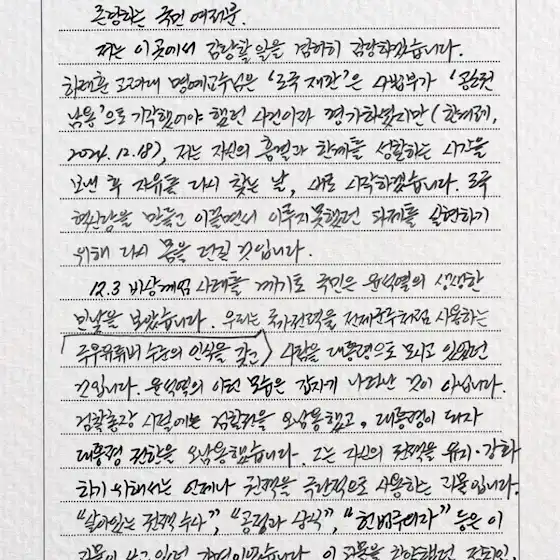 존경하는 국민 여러분.
저는 이곳에서 감당할 일을 겸허히 감당하겠습니다.
하태훈 고려대 명예교수님은 '조국 재판'은 사법부가 '공소권
남용'으로 기각했어야 했던 사건이라 평가하셨지만(한겨레,
2024.12.18), 저는 자신의 흠결과 한계를 성찰하는 시간을
보낸 후 자유를 다시 찾는 날, 새로 시작하겠습니다. 조국
혁신당을 만들고 이끌면서 이루지 못했던 과제를 실현하기
위해 다시 몸을 던질 것입니다.
12.3 비상계엄 사태를 계기로 국민은 윤석열의 생생한
민낯을 보았습니다. 우리는 국가권력을 전제군주처럼 사용하는
극우유튜버 수준의 인식을 갖고 사람을 대통령으로 모시고 있었던
것입니다. 윤석열의 이런 모습은 갑자기 나타난 것이 아닙니다.
검찰총장 시절에는 검찰권을 오남용했고, 대통령이 되자
대통령 권한을 오남용했습니다. 그는 자신의 권력을 유지·강화
하기 위해서는 언제나 권력을 극단적으로 사용하는 괴물입니다.
"살아있는 권력 수사", "공정과 상식", "헌법주의자" 등은 이
괴물이 쓰고 있던 가면이었습니다. 이 괴물을 찬양했던 정치인,